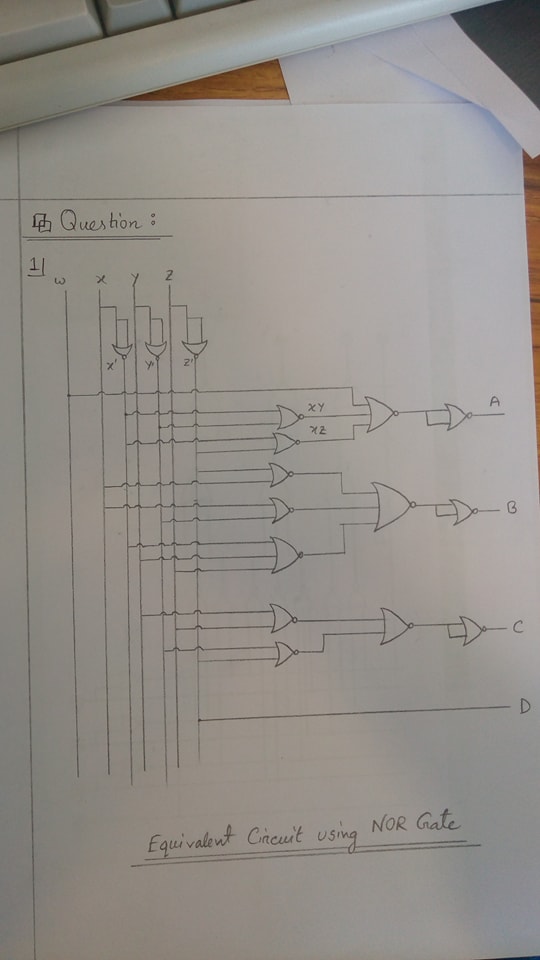 Question :
1|
w x y z
x' y' z'
xy
A
xz
B
C
D
Equivalent Circuit using NOR Gate